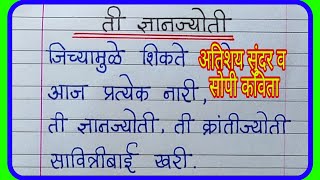 ती ज्ञानज्योती
जिच्यामुळे शिकते
अतिशय सुंदर व
सोपी कविता
आज प्रत्येक नारी,
ती ज्ञानज्योती, ती क्रांतीज्योती
सावित्रीबाई खरी.